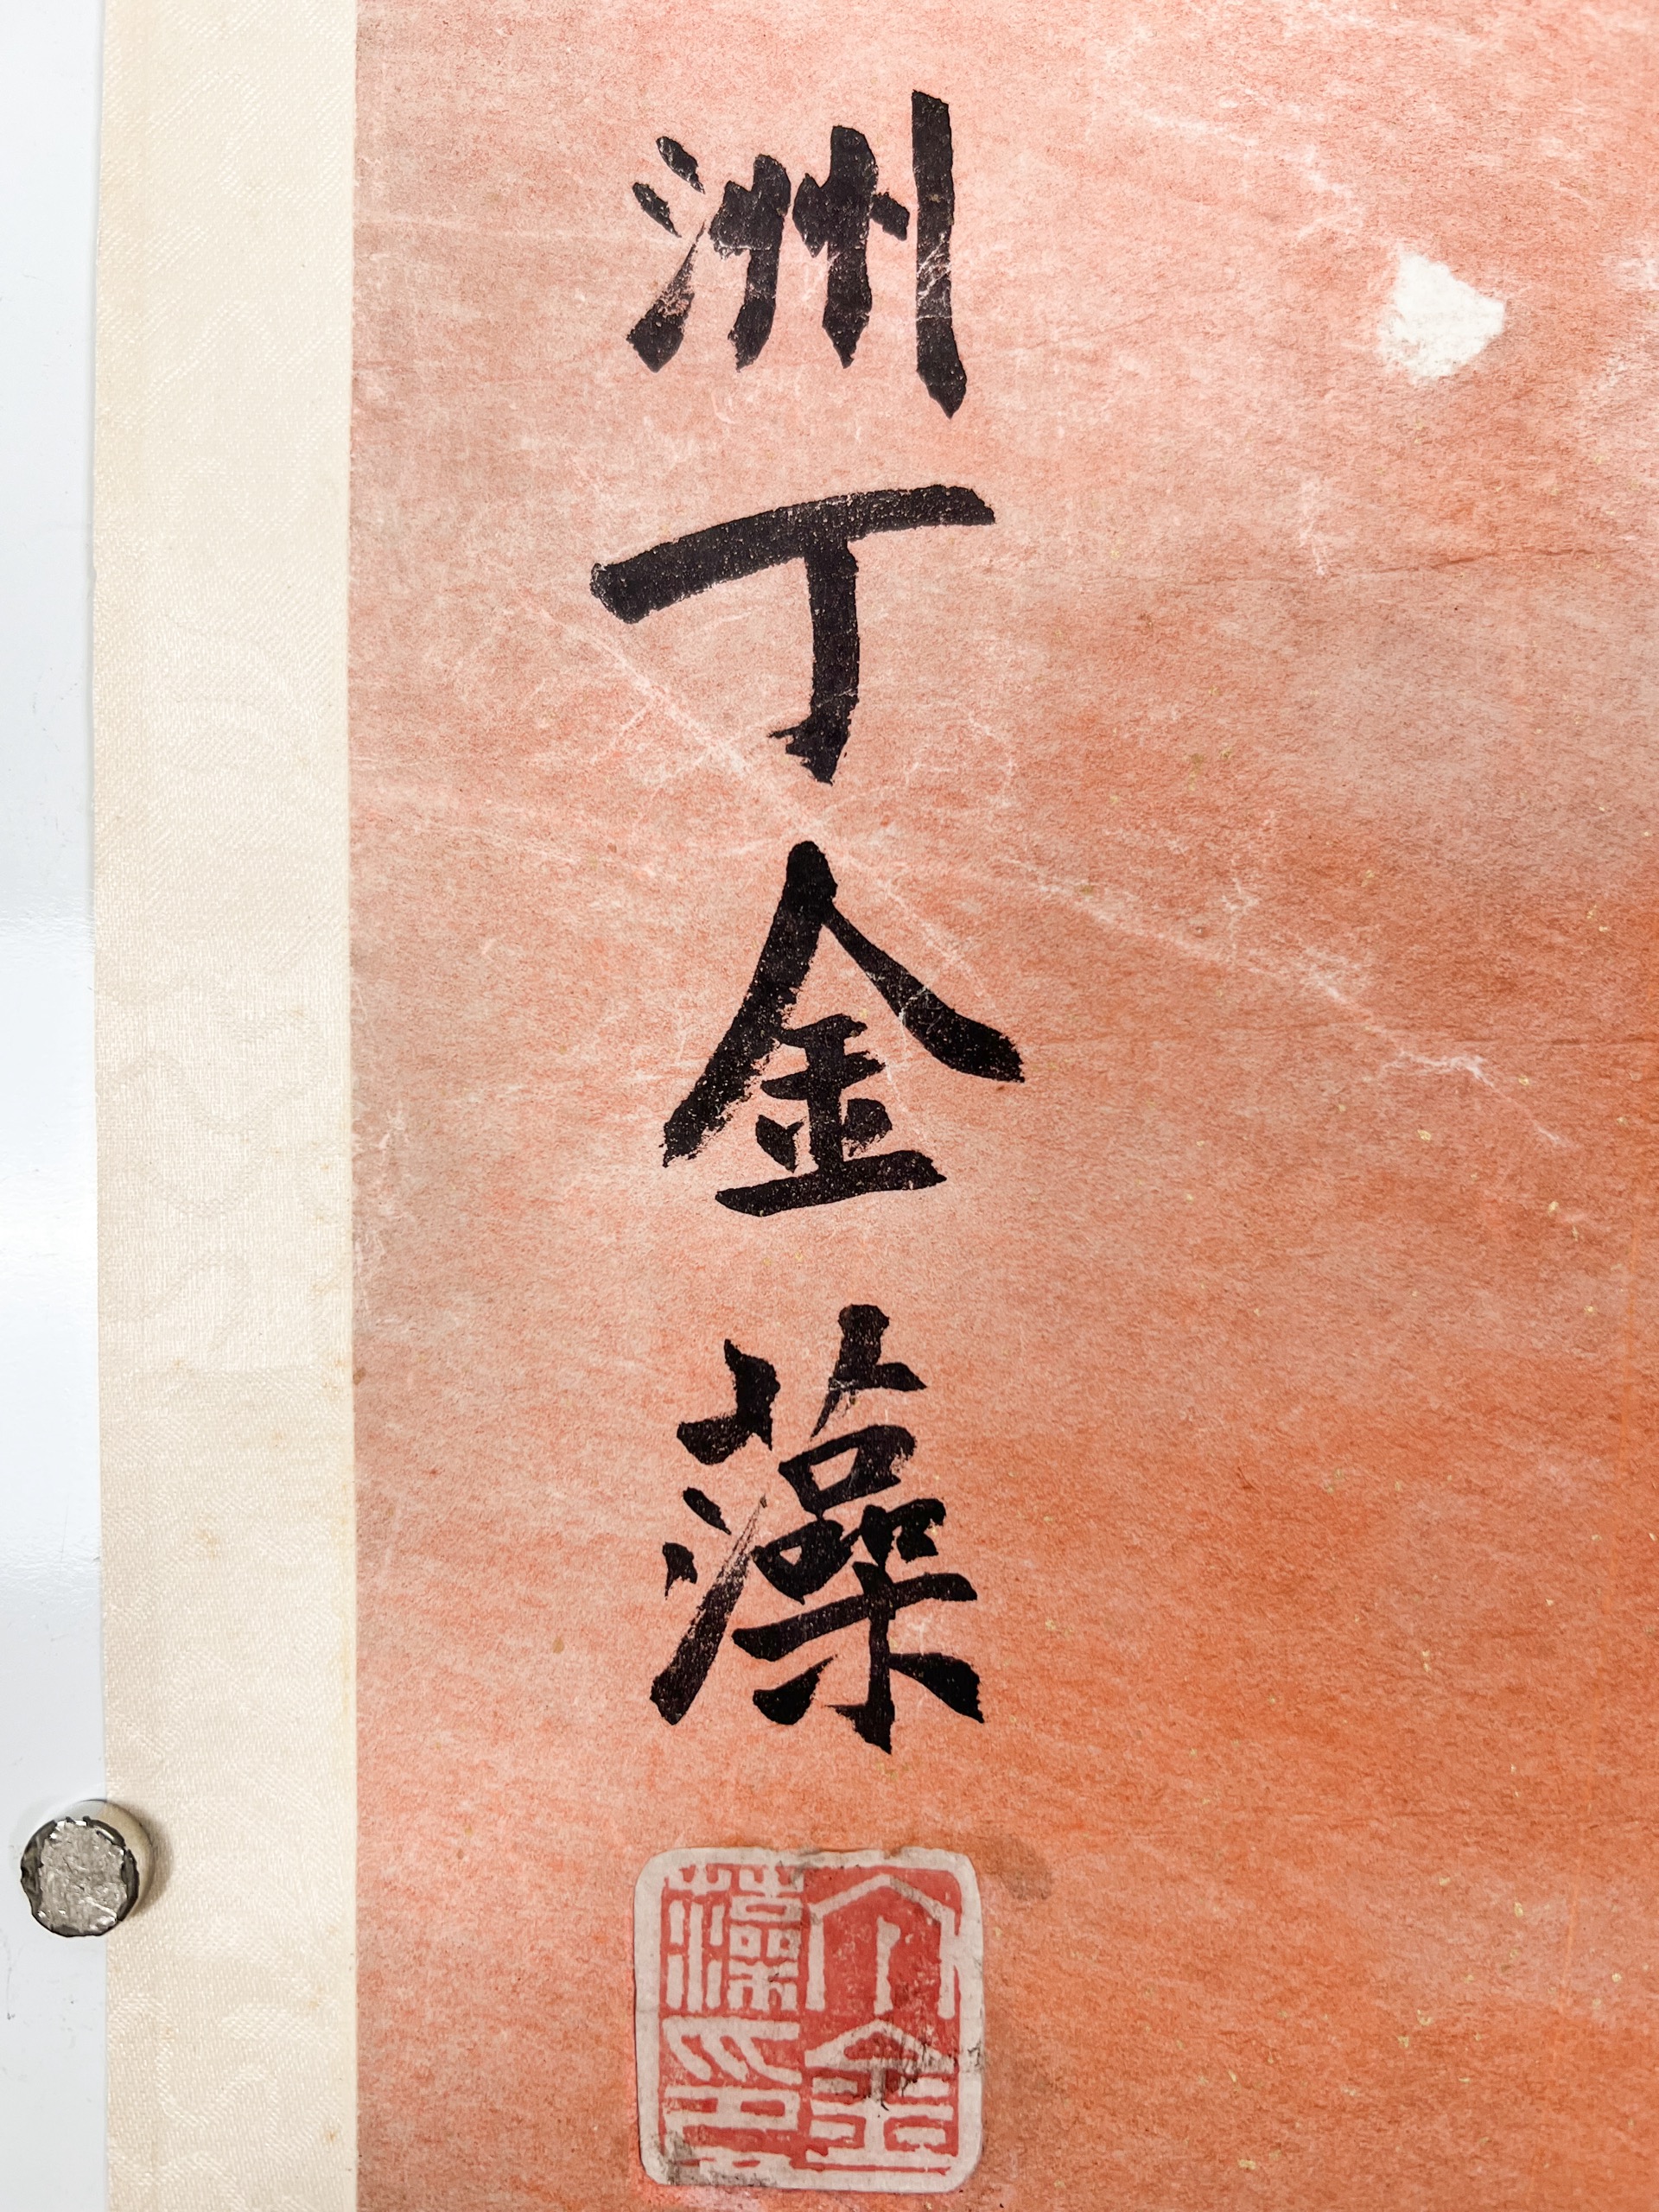 洲丁金藻
丁金藻印